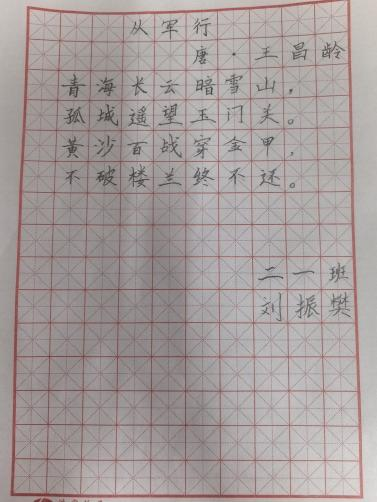 从军行
唐·王昌龄
青海长云暗雪山，
孤城遥望玉门关。
黄沙百战穿金甲，
不破楼兰终不还。
二一班
刘振樊